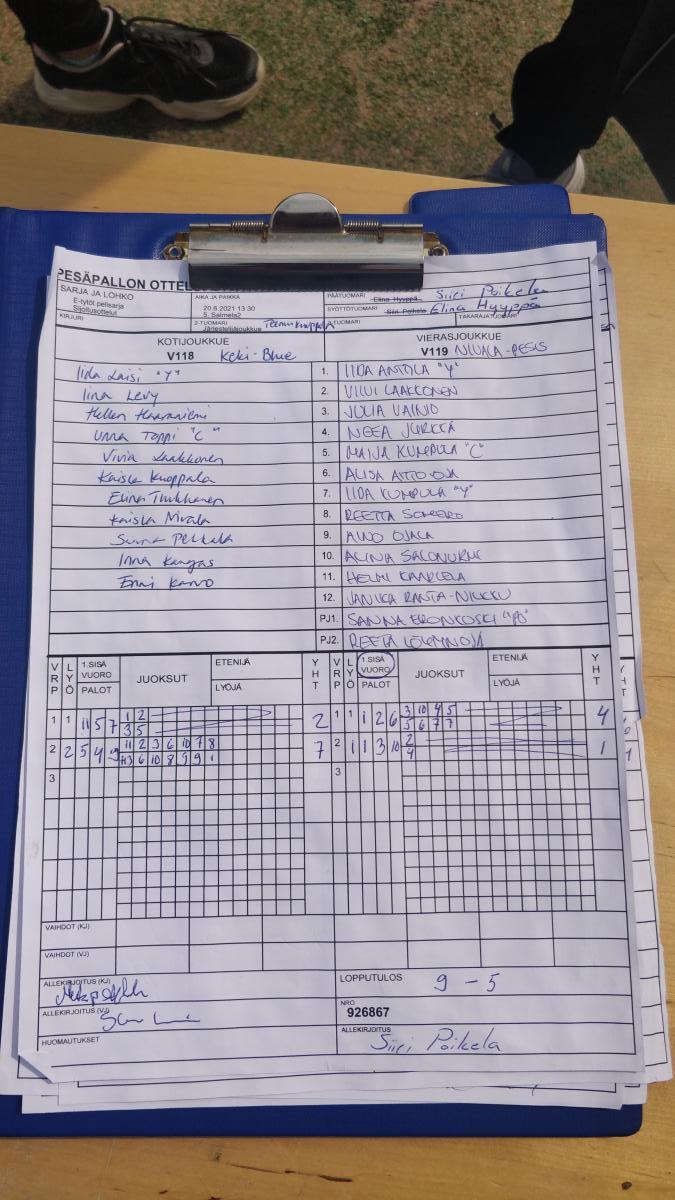 PESÄPALLON OTTEL
SARJA JA LOHKO
E-tytöt pelisarja
Sijoitusottelut
AIKA JA PAIKKA
20.6.2021 13:30
5. Salmela2
PÄÄTUOMARI Elina Hyyppä Siiri Poikela
SYÖTTÖTUOMARI Siiri Poikela Elina Hyyppä
KIRJURI
2-TUOMARI
Järjestelijäjoukkue
TUOMARI
TAKARAJATUOMARI
KOTIJOUKKUE VIERASJOUKKUE
V118 Keki-Blue V119 NIVALA-PESIS
Iida Laisi "Y" 1. IIDA ANTTOLA "Y"
Iina Levy 2. VIIVI LAAKKONEN
Hellen Haaraniemi 3. JULIA VAINIO
Unna Toppi "C" 4. NEEA JURKKA
Vivia Laakkonen 5. MAIJA KUMPULA "C"
Kaisla Kuoppala 6. ALISA AITTO-OJA
Elina Turkkanen 7. IIDA KUMPULA "Y"
Kaisla Nivala 8. REETTA
Sanna Pekkala 9. AINO OJALA
Inna Kangas 10. ALINA
Enni Karvo 11. HELMI KAARLELA
12. JANIKA RANTA-NIKKU
PJ1. SANNA ERONKOSKI "PJ"
PJ2. REETA
VRP LYÖ 1.SISÄ VUORO PALOT JUOKSUT ETENIJÄ LYÖJÄ YHT VRP LYÖ 1.SISÄ VUORO PALOT JUOKSUT ETENIJÄ LYÖJÄ YHT
1 1 11 5 7 1 2 2 1 1 1 2 6 3 10 4 5 4
3 5 5 6 7 7
2 2 5 4 9 11 2 3 6 10 7 8 7 2 1 1 3 10 2 1
3 6 10 8 9 9 1 4
3 3
VAIHDOT (KJ)
VAIHDOT (VJ)
ALLEKIRJOITUS (KJ)
LOPPUTULOS 9 - 5
ALLEKIRJOITUS (VJ)
NRO
926867
HUOMAUTUKSET
ALLEKIRJOITUS
Siiri Poikela